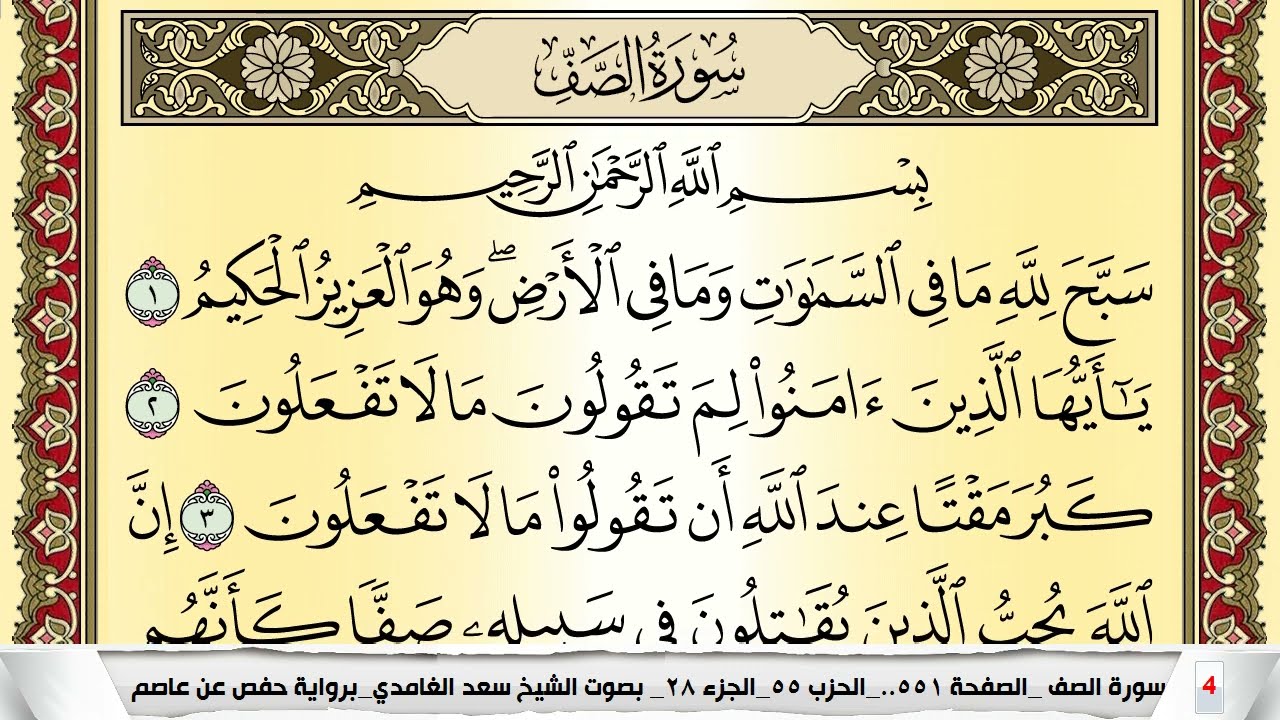 سُورَةُ الصَّفِّ
بِسْمِ ٱللَّهِ ٱلرَّحْمَٰنِ ٱلرَّحِيمِ
سَبَّحَ لِلَّهِ مَا فِى ٱلسَّمَٰوَٰتِ وَمَا فِى ٱلْأَرْضِ ۖ وَهُوَ ٱلْعَزِيزُ ٱلْحَكِيمُ ١
يَٰٓأَيُّهَا ٱلَّذِينَ ءَامَنُوا۟ لِمَ تَقُولُونَ مَا لَا تَفْعَلُونَ ٢
كَبُرَ مَقْتًا عِندَ ٱللَّهِ أَن تَقُولُوا۟ مَا لَا تَفْعَلُونَ ٣ إِنَّ
ٱللَّهَ يُحِبُّ ٱلَّذِينَ يُقَٰتِلُونَ فِى سَبِيلِهِۦ صَفًّا كَأَنَّهُم
4 سورة الصف _الصفحة ٥٥١.._الحزب ٥٥_الجزء ٢٨_ بصوت الشيخ سعد الغامدي_برواية حفص عن عاصم